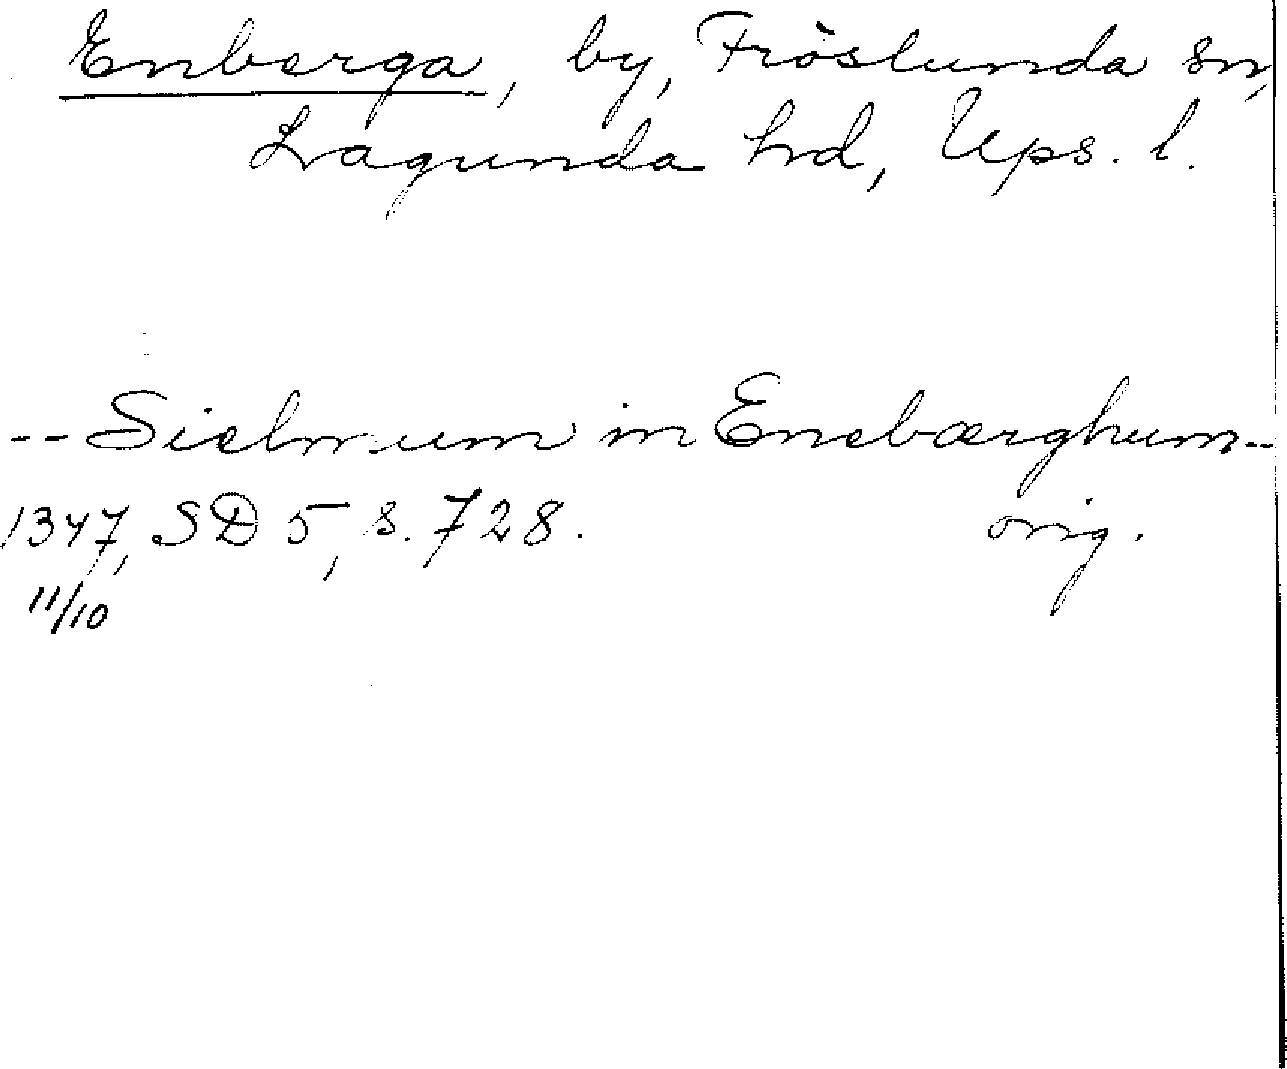 Enberga, by, Fröslunda sn,
Lagunda hd, Ups. l.
-- Sielmum in Enebærghum --
1347, SD 5, s. 728. orig.
11/10